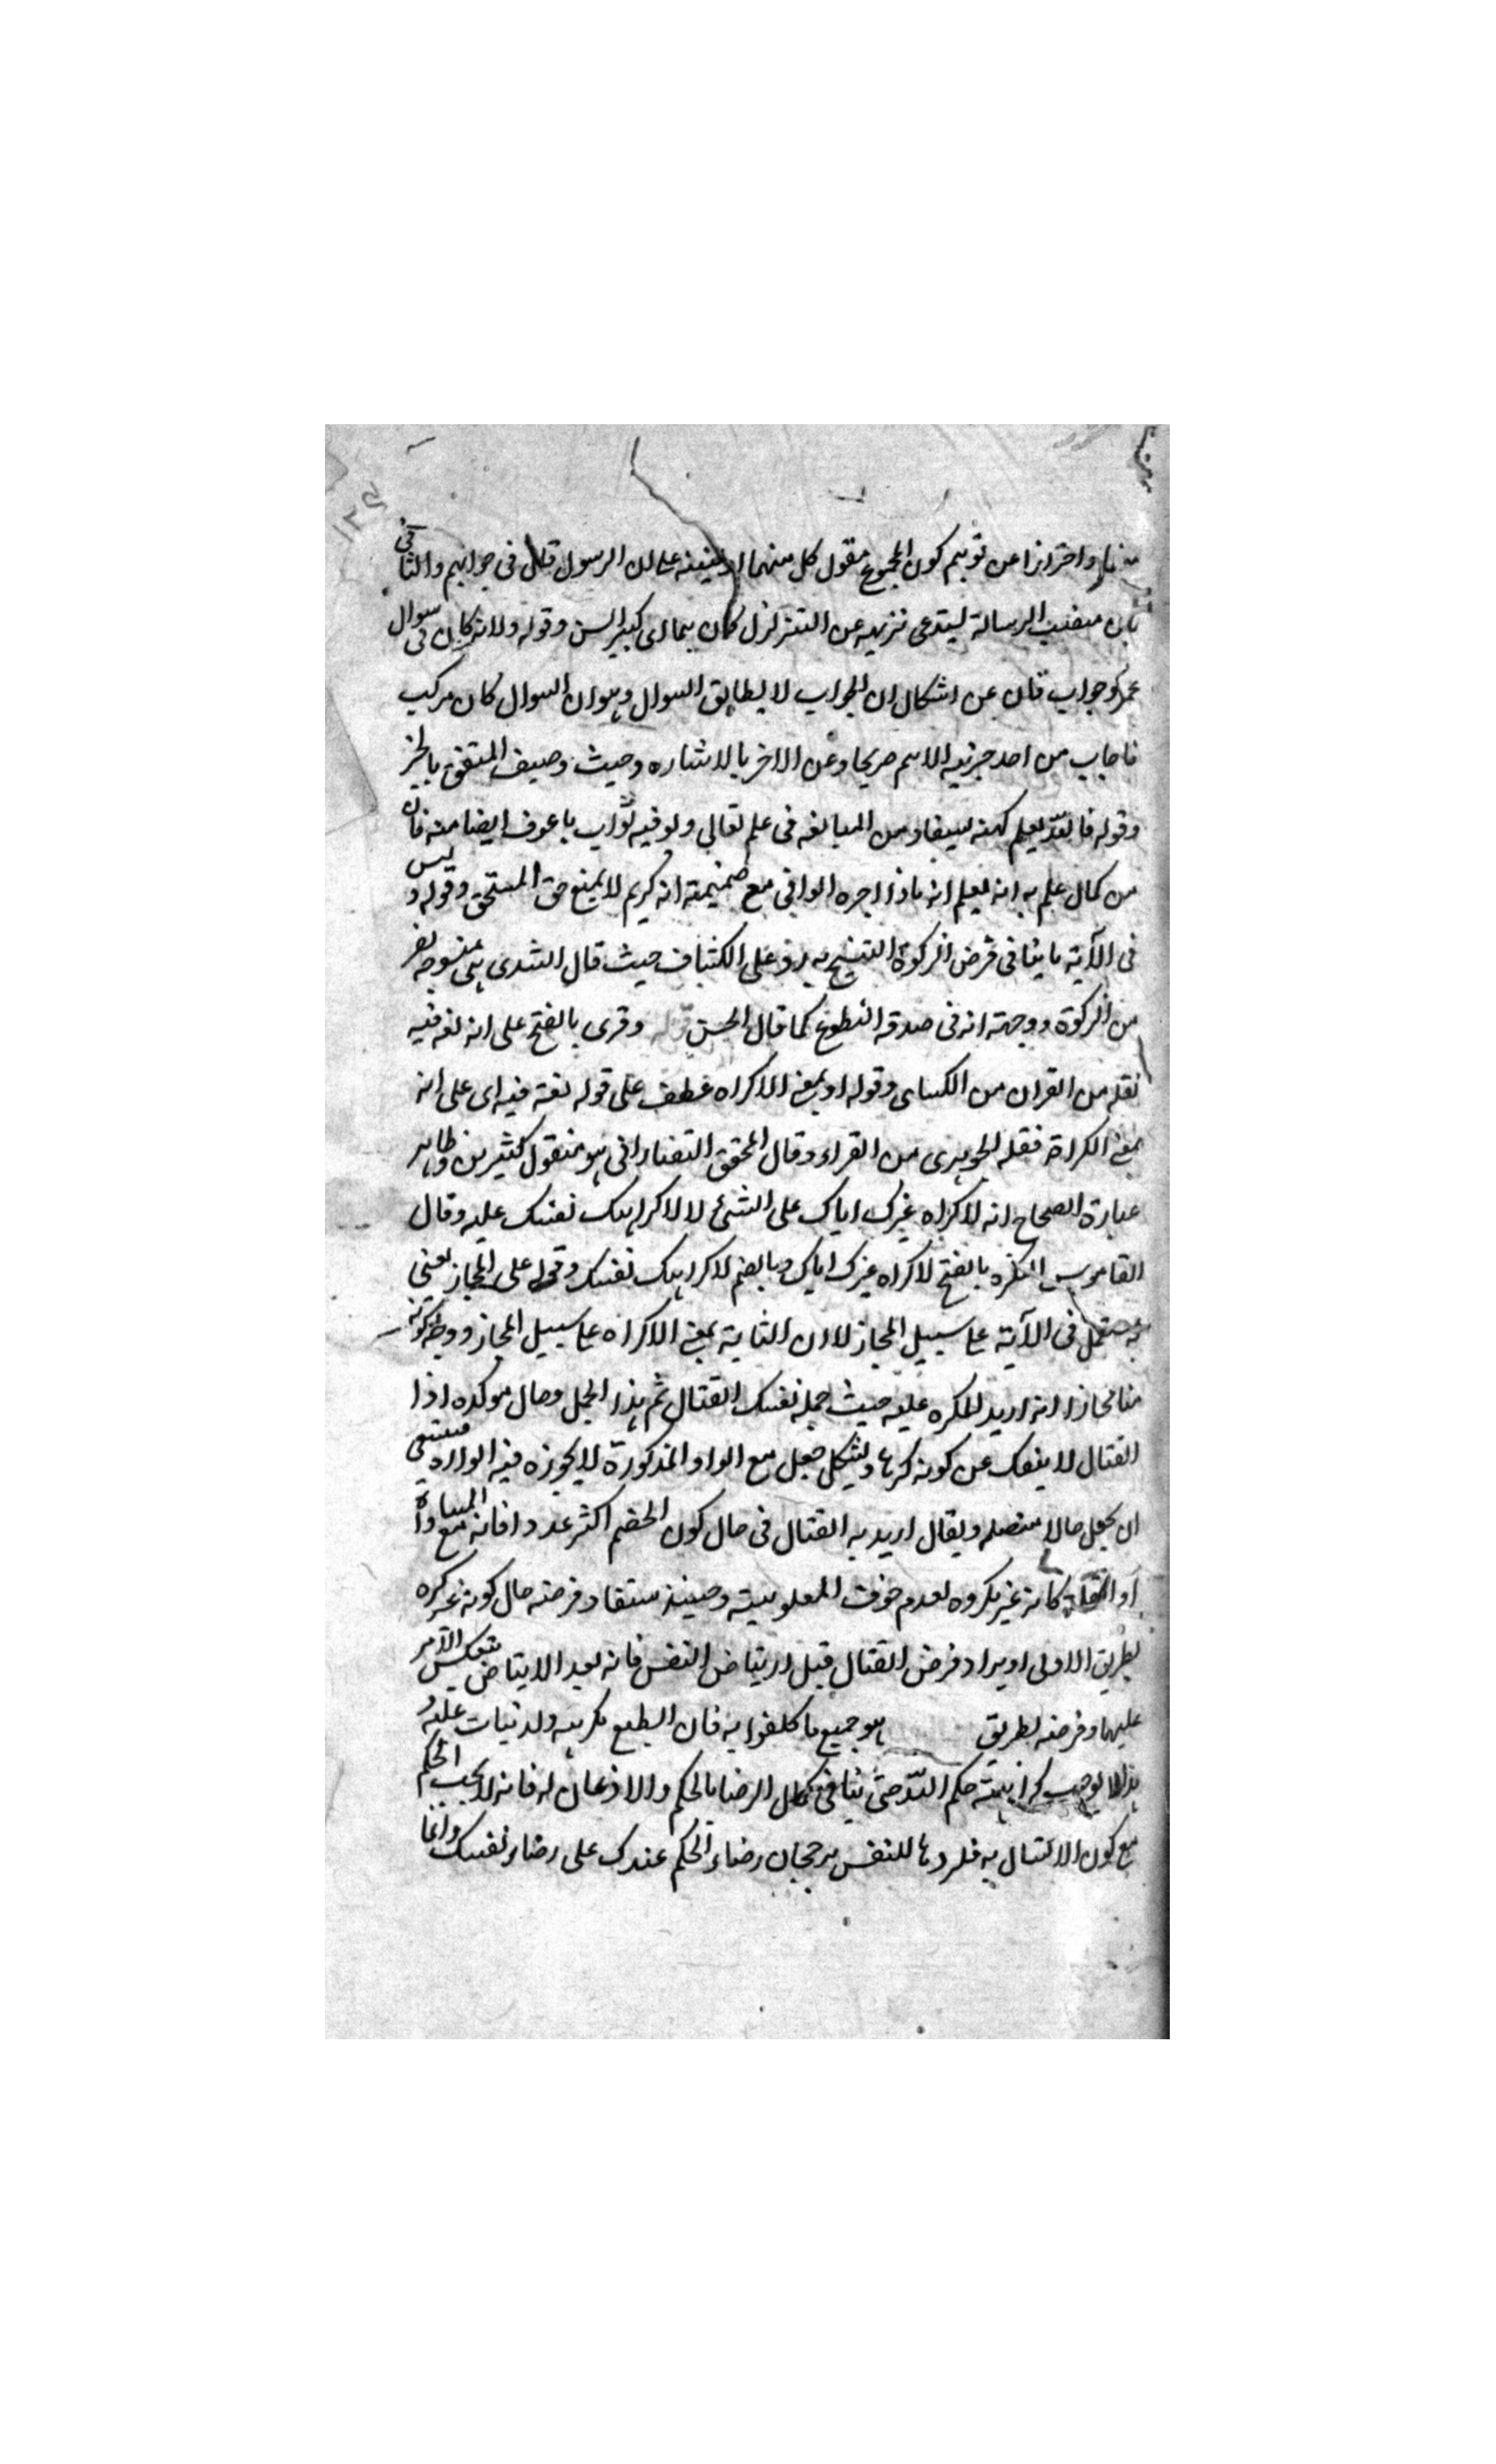 واحترازا عن توهم كون المجموع مقول كل منهما الرسول قال فى جوابهم والثانى
بان منصب الرسالة يستدعى تنزيهه عن التنزلزل كان هما اى كبير السن وقوله ولانه كان فى سوال
عمرو جواب فان عن اشكال ان الجواب لا يطابق السوال وهو ان السوال كان مركب
فاجاب من احد جزئيه الاسم صريحا وعن الاخر بالاشاره وحيث وصف المنفق بالخير
وقوله فان الله يعلم كنهه يستفاد من المبالغه فى علم تعالى ولوفيه ثواب باعوف ايضا منه فان
من كمال علمه به انه يعلم انه ماذا اجره الوافى مع ضميمته انه كريم لا يمنع حق المستحق وقوله وليس
فى الآية ما ينافى فرض الزكوة لتنسخ به رد على الكشاف حيث قال السدى هى منسوخه بفر
من الزكوة ووجهته انه فى صدقه التطوع كما قال الحسن قوله وقرى بالفتح على انه لغه فيه
نقله من القران من الكساى وقوله او بمعنى الاكراه عطف على قوله لغة فيه اى على انه
بمعنى الكراهة فنقله الجوهرى من القراء وقال المحقق التفتازانى هو منقول كثيرين وظاهر
عبارة الصحاح انه لاكراه غيرك اياك على الشئ لا لاكراهك نفسك عليه وقال
القاموس الكره بالفتح لاكراه غيرك اياك وبالضم لاكراهك نفسك وقوله على المجاز يعنى
فى الآية على سبيل المجاز لا ان الثانية بمعنى الاكراه على سبيل المجاز ووجه كونه
منا مجازا انه اريد المكره عليه حيث حمله نفسك القتال ثم هذا الجمل وحال موكده اذا
القتال لا ينفك عن كونه كرها ويشكل جعل مع الواو المذكورة لا يجوزه فيه الوارد فينبغى
ان يجعل حالا متصله ويقال اريد به القتال فى حال كون الخصم اكثر عددا فانه مع المساواة
او القلة كانه غير مكروه لعدم خوف المغلوبية وحينئذ ستفاد فرضه حال كونه غير كره
بطريق الاولى او يراد فرض القتال قبل ارتياض النفس فانه بعد الاريتاض ينعكس الامر
عليهما وفرضه بطريق هو جميع ما كلفوا به فان الطبع يكرهه ولد نيات عليه و
هذا لا يوجب كراهته حكم الله حتى ينافى كمال الرضا بالحكم والاذعان له فانه لا يجب الحكم
مع كون الامتثال به للنفس يرجحان رضاء الحكم عندك على رضاء نفسك وانما